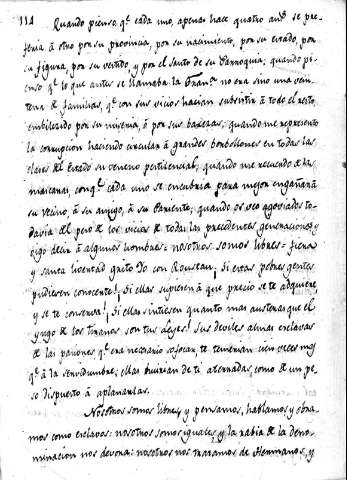 114
Quando pienso, q.e cada uno, apenas hace quatro añ.s se pre-
feria â otro por su provincia, por su nacimiento, por su estado, por
su figura, por su vestido, y por el santo de su Parroquia; quando pi-
enso q.e lo que antes se llamaba la Fran.a no era sino una vein-
tena de familias, q.e con sus vicios hacian subsistir â todo el resto
embilezido por su miseria, ô por sus bajezas; quando me represento
la corrupcion haciendo circular â grandes borbollones en todas las
clases del Estado su veneno pestilencial; quando me recuerdo de las
mascaras, con q.e cada uno se encubria para mejor engañar â
su vecino, â su amigo, â su Pariente; quando os veo agoviados to-
davia del peso de los vicios de todas las precedentes generaciones, y
oigo decir â algunos hombres = nosotros somos libres = fiera
y santa livertad grito Yo con Rouseau; si estas pobres gentes
pudiesen conocerte!, si ellas supiesen â que precio se te adquiere
y se te conserva!, si ellas sintiesen quanto mas austeras que el
yugo de los tiranos son tus Leyes! sus deviles almas esclavas
de las pasiones q.e era necesario sofocar, te temerian cien veces mas
q.e â la servidumbre; ellas huirian de ti aterradas, como de un pe-
so dispuesto â aplanarlas.
Nosotros somos libres, y pensamos, hablamos, y obra-
mos como esclavos: nosotros somos iguales, y la rabia de la deno-
minacion nos devora: nosotros nos tratamos de Hermanos, y